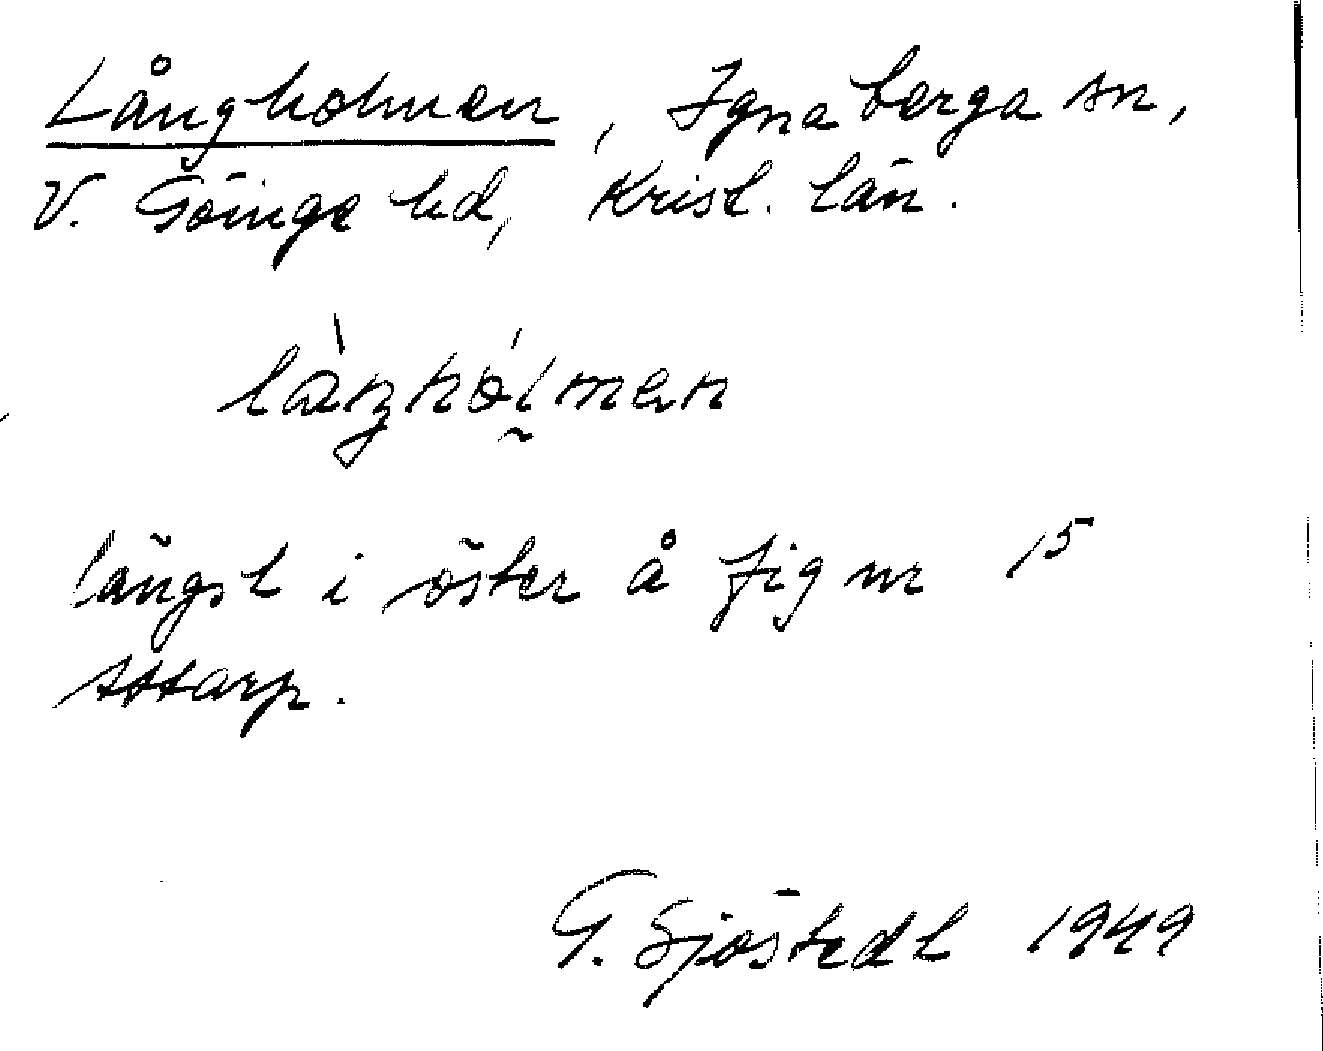 Långholmen, Ignaberga sn,
V. Göinge hd, Krist. län.
längst i öster å fig nr 15
Attarp.
G. Sjöstedt 1949